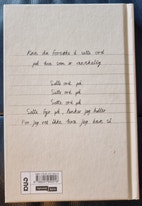 Kan du forsøke å sette ord
på hva som er vanskelig
Sette ord på
Sette ord på
Sette ord på
Sette lys på, tenker jeg heller
For jeg vet ikke hva jeg kan si